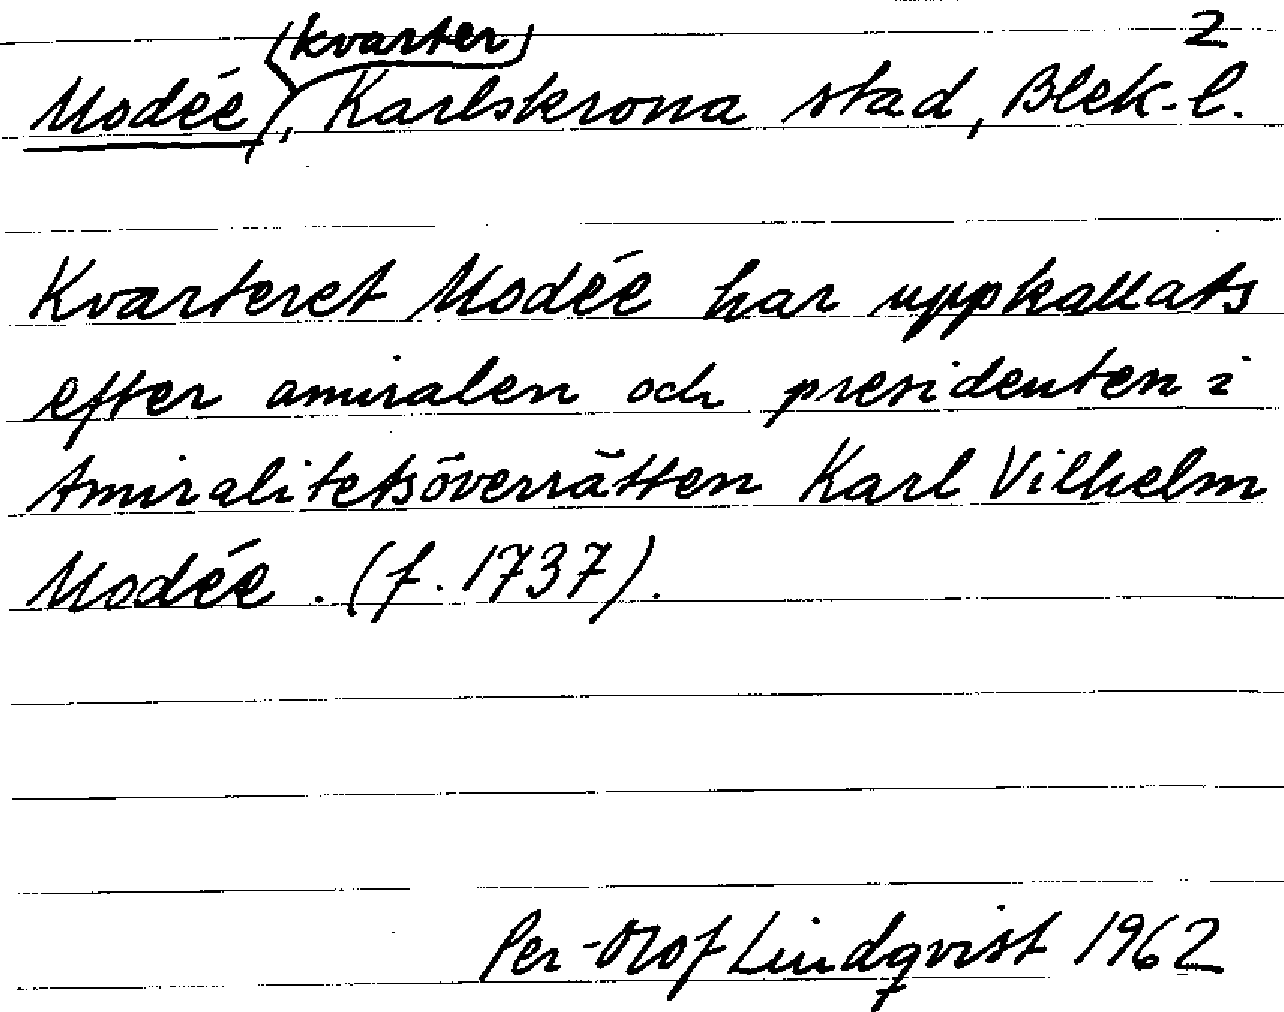 (kvarter) 2
Modée, Karlskrona stad, Blek-l.
Kvarteret Modée har uppkallats
efter amiralen och presidenten i
Amiralitetsöverrätten Karl Vilhelm
Modée. (f. 1737).
Per-Olof Lindqvist 1962